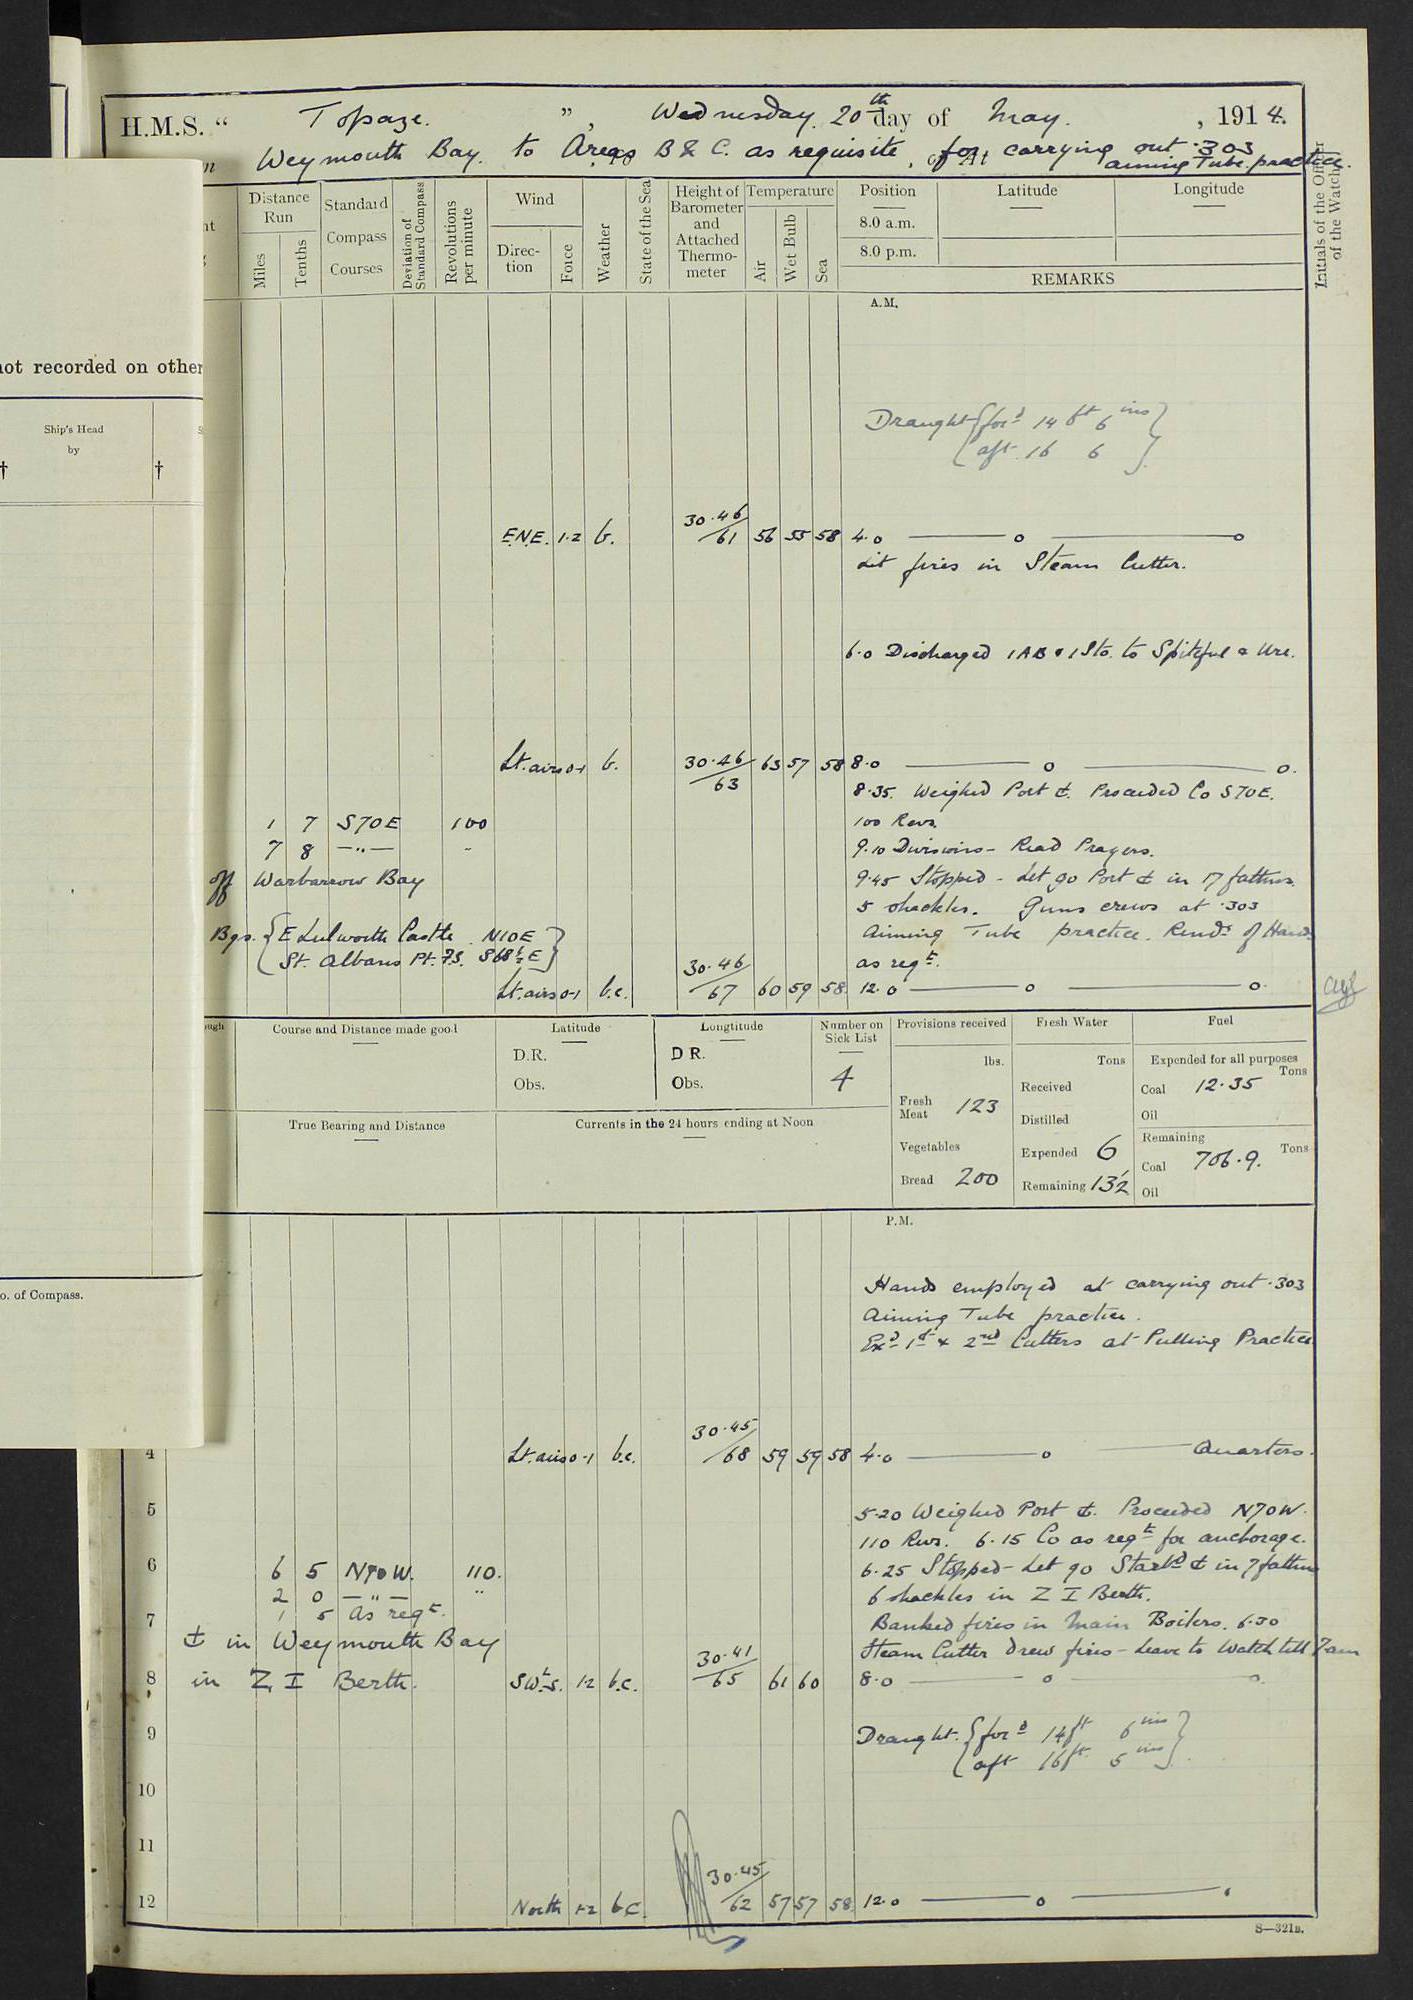 H.M.S. “ Topaze. ”, Wednesday 20th day of May. , 1914.
Weymouth Bay. to Areas B & C. as requisite, for carrying out .303
aiming Tube practice.
Distance Run
Miles
Tenths
Standard Compass Courses
Deviation of Standard Compass
Revolutions per minute
Wind
Direction
Force
Weather
State of the Sea
Height of Barometer and Attached Thermometer
Temperature
Air
Wet Bulb
Sea
Position
8.0 a.m.
8.0 p.m.
Latitude
Longitude
REMARKS
Initials of the Officer of the Watch
not recorded on other
Ship's Head
by
†
†
A.M.
Draught { for d 14 ft 6 ins }
{ aft 16 6 }
E.N.E. 1.2 b. 30.46/61 56 55 58 4.0 — o — o
Lit fires in Steam Cutter.
6.0 Discharged 1 AB & 1 Sto. to Spiteful & Ure.
Lt. airs 0-1 b. 30.46/63 63 57 58 8.0 — o — o.
8.35. Weighed Port ⚓. Proceeded Co S70E.
1 7 S70E 100 100 Revs.
7 8 —"— " 9.10 Divisions – Read Prayers.
off Warbarrow Bay 9.45 Stopped – Let go Port ⚓ in 17 fathms.
5 shackles. Guns crews at .303
Bgs. { E Lulworth Castle N10E } Aiming Tube practice. Remdr of Hands
{ St. Albans Pt. F.S. S68½E } as reqt.
Lt. airs 0-1 b.c. 30.46/67 60 59 58. 12.0 — o — o.
Course and Distance made good
Latitude
D.R.
Obs.
Longtitude
D R.
Obs.
Number on Sick List
4
Provisions received
lbs.
Fresh Meat 123
Vegetables
Bread 200
Fresh Water
Tons
Received
Distilled
Expended 6
Remaining 132
Fuel
Expended for all purposes
Tons
Coal 12.35
Oil
Remaining
Tons
Coal 706.9.
Oil
True Bearing and Distance
Currents in the 24 hours ending at Noon
P.M.
o. of Compass.
Hands employed at carrying out .303
Aiming Tube practice.
Exd 1st & 2nd Cutters at Pulling Practice
4 Lt. airs 0-1 b.c. 30.45/68 59 59 58 4.0 — o — Quarters.
5 5.20 Weighed Port ⚓. Proceeded N70W.
110 Revs. 6.15 Co as reqt for anchorage.
6 6 5 N70W. 110. 6.25 Stopped – Let go Starbd ⚓ in 7 fathms
2 0 —"— " 6 shackles in Z I Berth.
7 1 5 As reqt. Banked fires in Main Boilers. 6.30
⚓ in Weymouth Bay Steam Cutter drew fires – Leave to Watch till 7am
8 in Z I Berth. SWt-S. 1-2 b.c. 30.41/65 61 60 8.0 — o — o.
9 Draught. { for d 14ft 6 ins }
{ aft 16ft 5 ins }
10
11
12 North 1-2 b.c. 30.45/62 57 57 58 12.0 — o —
S—321B.